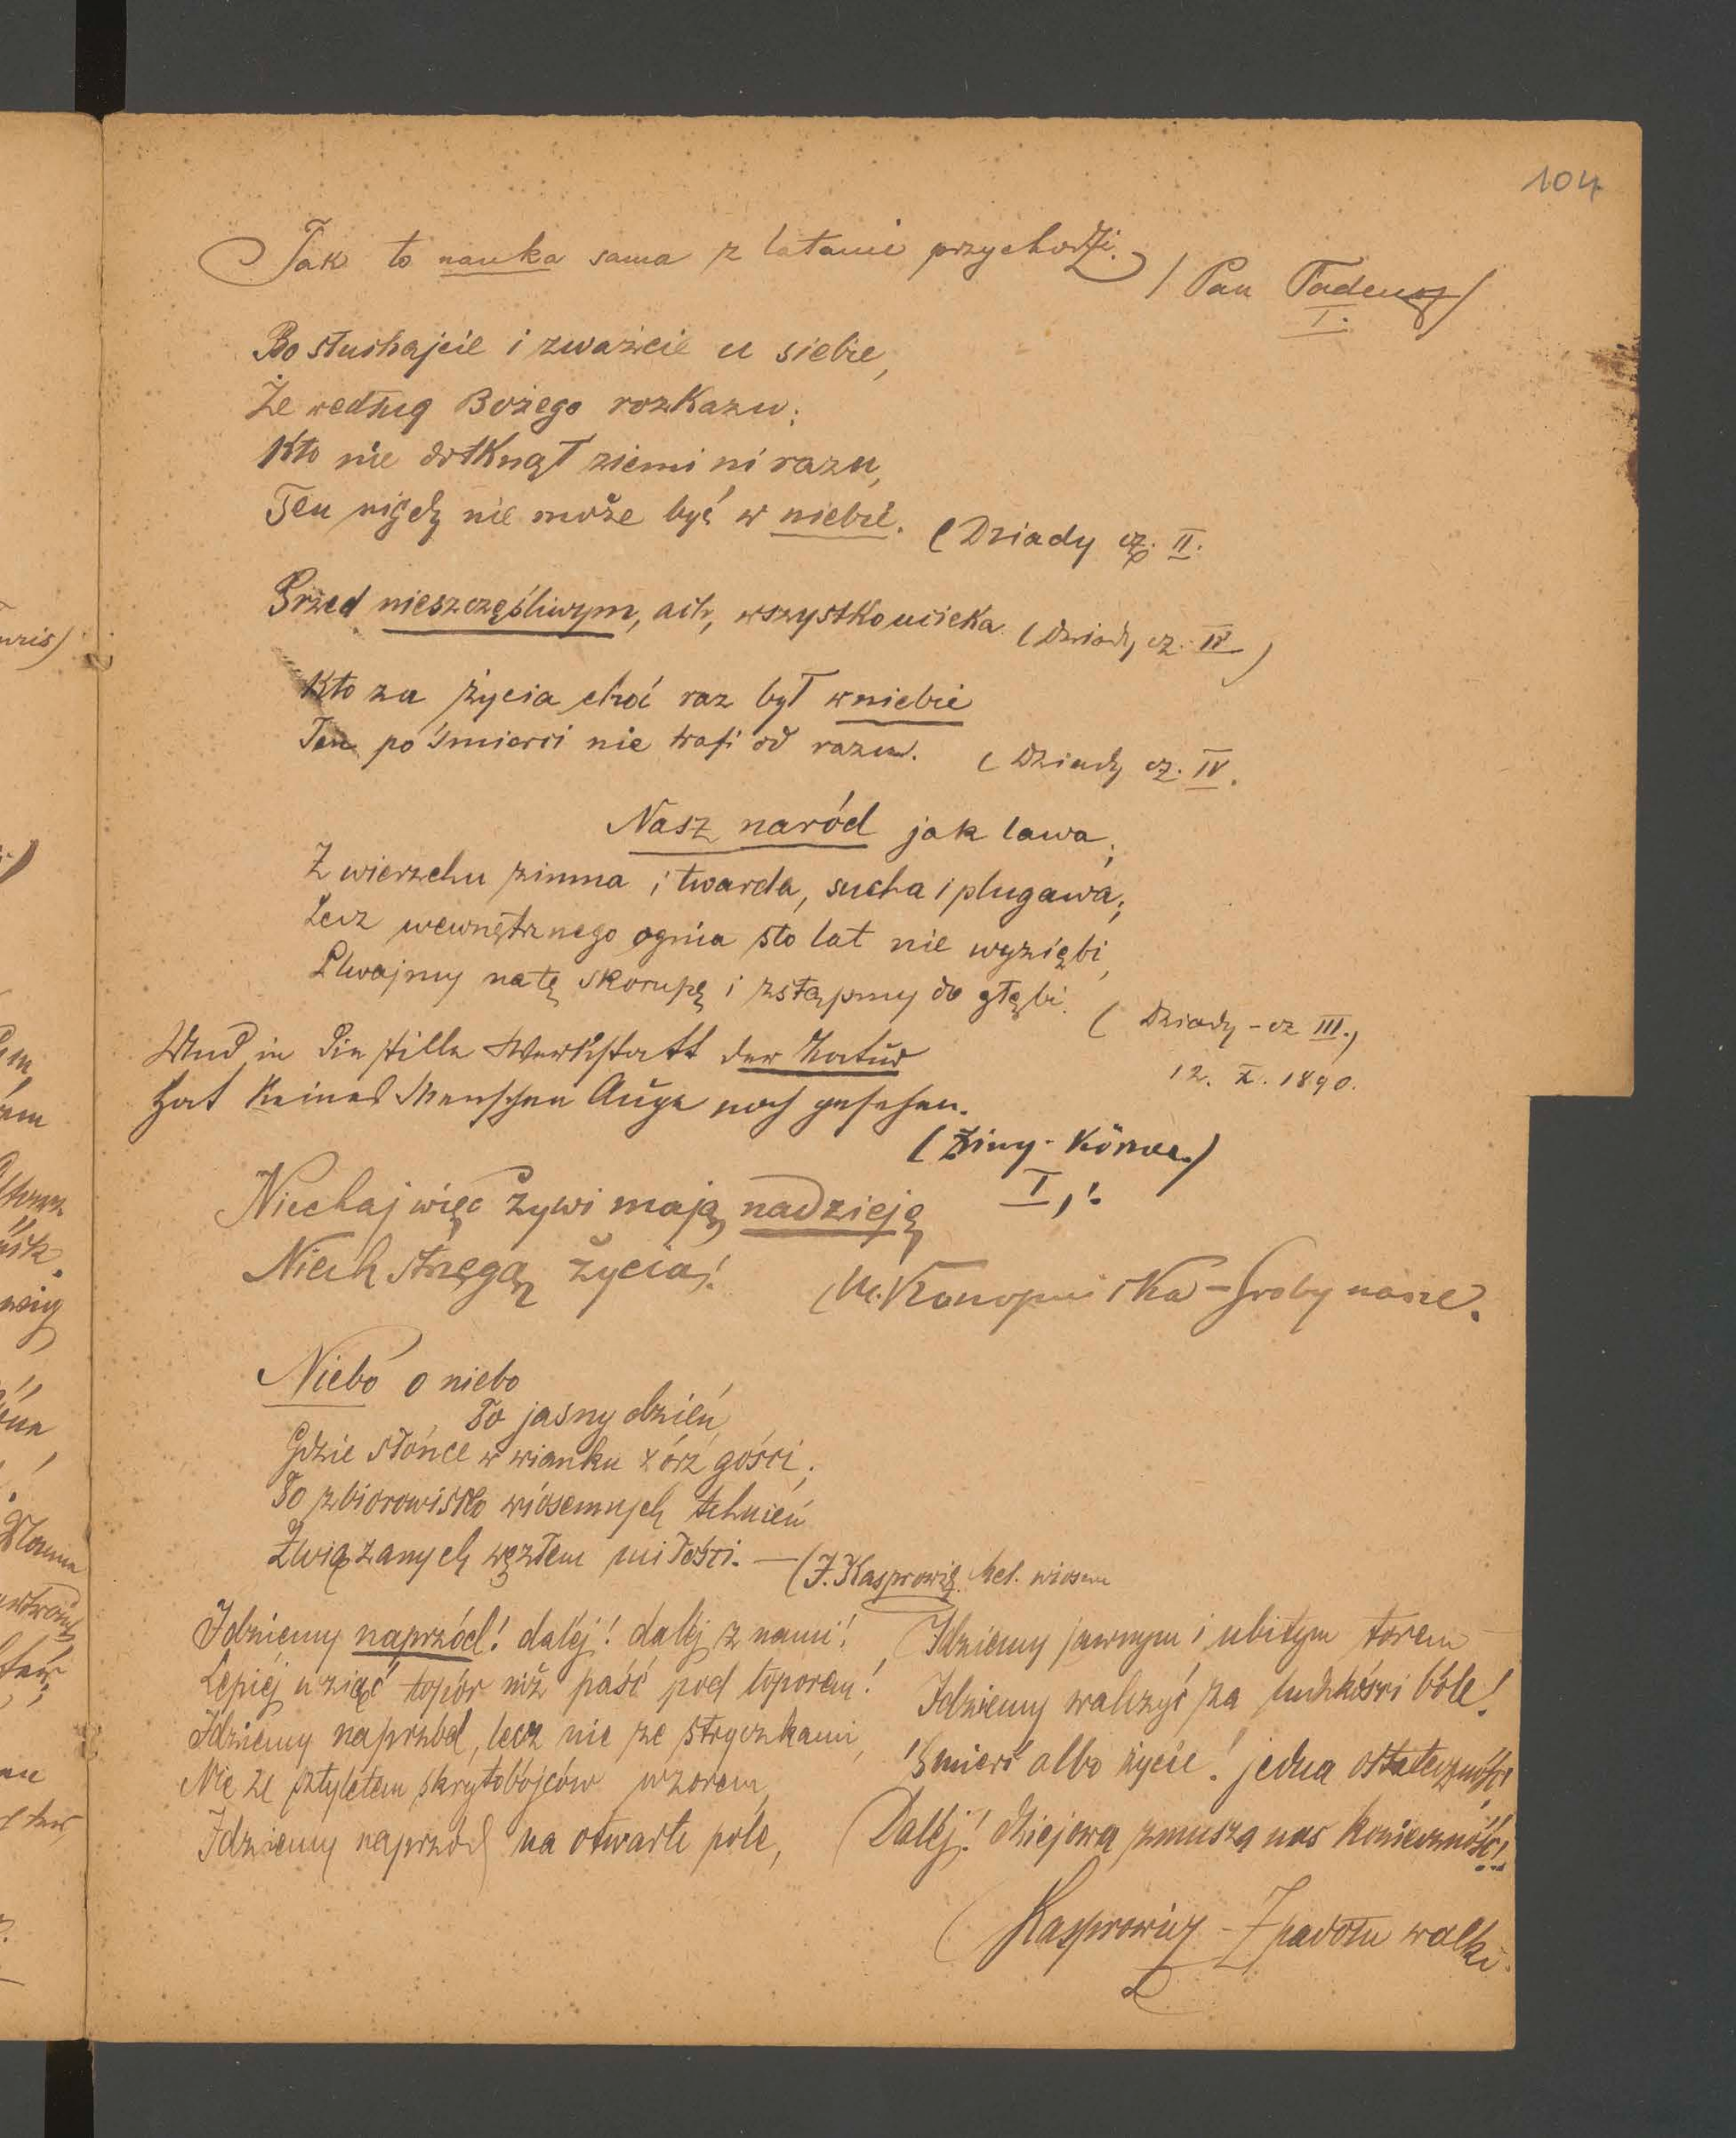 104
Tak to nauka sama z latami przychodzi.
/ Pan Tadeusz /
I.
Bo słuchajcie i zważcie u siebie,
Że według Bożego rozkazu:
Kto nie dotknął ziemi ni razu,
Ten nigdy nie może być w niebie. (Dziady cz. II.
Przed nieszczęśliwym, ach, wszystko ucieka (Dziady cz. IV)
Kto za życia choć raz był w niebie
Ten po śmierci nie trafi od razu. (Dziady cz. IV.
Nasz naród jak lawa;
Z wierzchu zimna i twarda, sucha i plugawa;
Lecz wewnętrznego ognia sto lat nie wyziębi,
Plwajmy na tę skorupę i zstąpmy do głębi. ( Dziady - cz III.)
12. X. 1890.
Und in die stille Werkstatt der Natur
Hat keines Menschen Auge noch gesehen.
(Zriny - Körner.)
I,
Niechaj więc żywi mają nadzieję
Niech strzegą życia! (M. Konopnicka - Groby nasze.
Niebo o niebo
To jasny dzień,
Gdzie słońce w wianku zórz gości;
To zbiorowisko wiosennych tchnień
Związanych węzłem miłości. — (J. Kasprowicz. Mel. wiosen
Idziemy naprzód! daléj! daléj z nami!
Lepiéj wziąć topór niż paść pod toporem!
Idziemy naprzód, lecz nie ze stryczkami,
Nie ze sztyletem skrytobójców wzorem,
Idziemy naprzód na otwarte pole,
Idziemy jawnym i ubitym torem
Idziemy walczyć za ludzkości bóle!
Śmierć albo życie! jedna ostateczność!
Daléj! dziejowa zmusza nas konieczność!
(Kasprowicz - Z padołu walki.